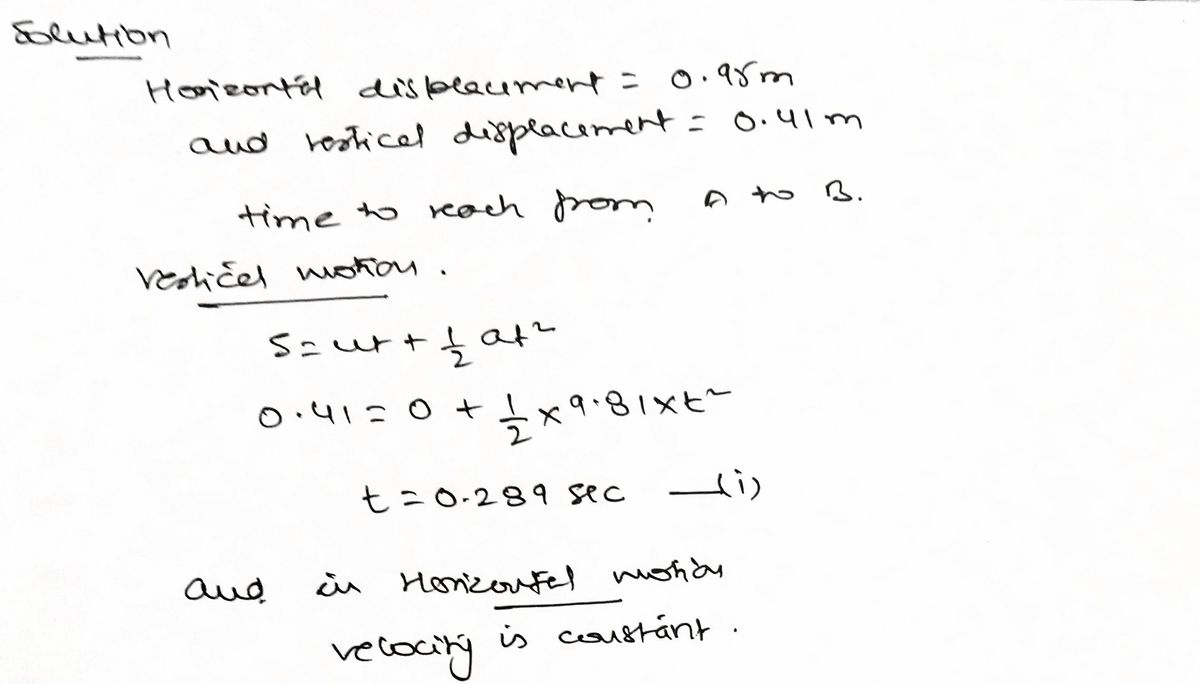 Solution
Horizontal displacement = 0.95m
and vertical displacement = 0.41m
time to reach from A to B.
Vertical motion.
S = ut + 1/2 at²
0.41 = 0 + 1/2 × 9.81 × t²
t = 0.289 sec —(i)
and in Horizontal motion
velocity is constant.